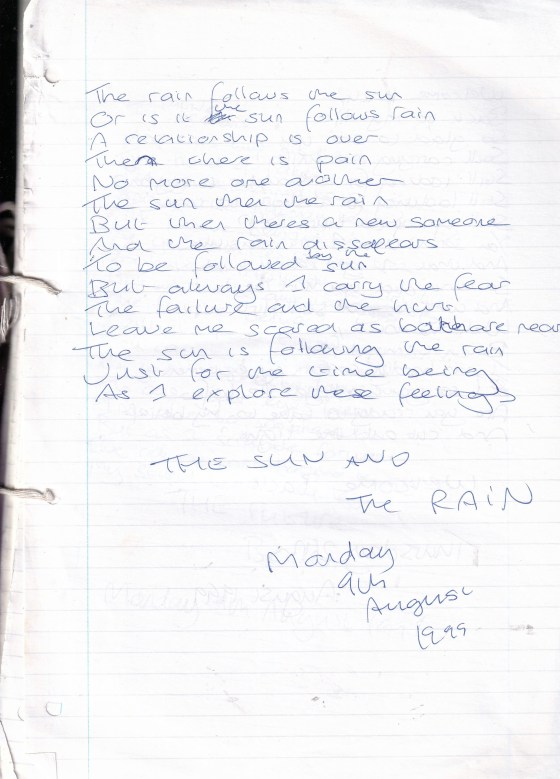 The rain follows the sun
Or is it the sun follows rain
A relationship is over
Then there is pain
No more one another
The sun then the rain
But then theres a new someone
And the rain dissapears
To be followed by the sun
But always I carry the fear
The failure and the hurt
Leave me scared as both are near
The sun is following the rain
Just for the time being
As I explore these feelings
THE SUN AND
The RAIN
Monday
9th
August
1999